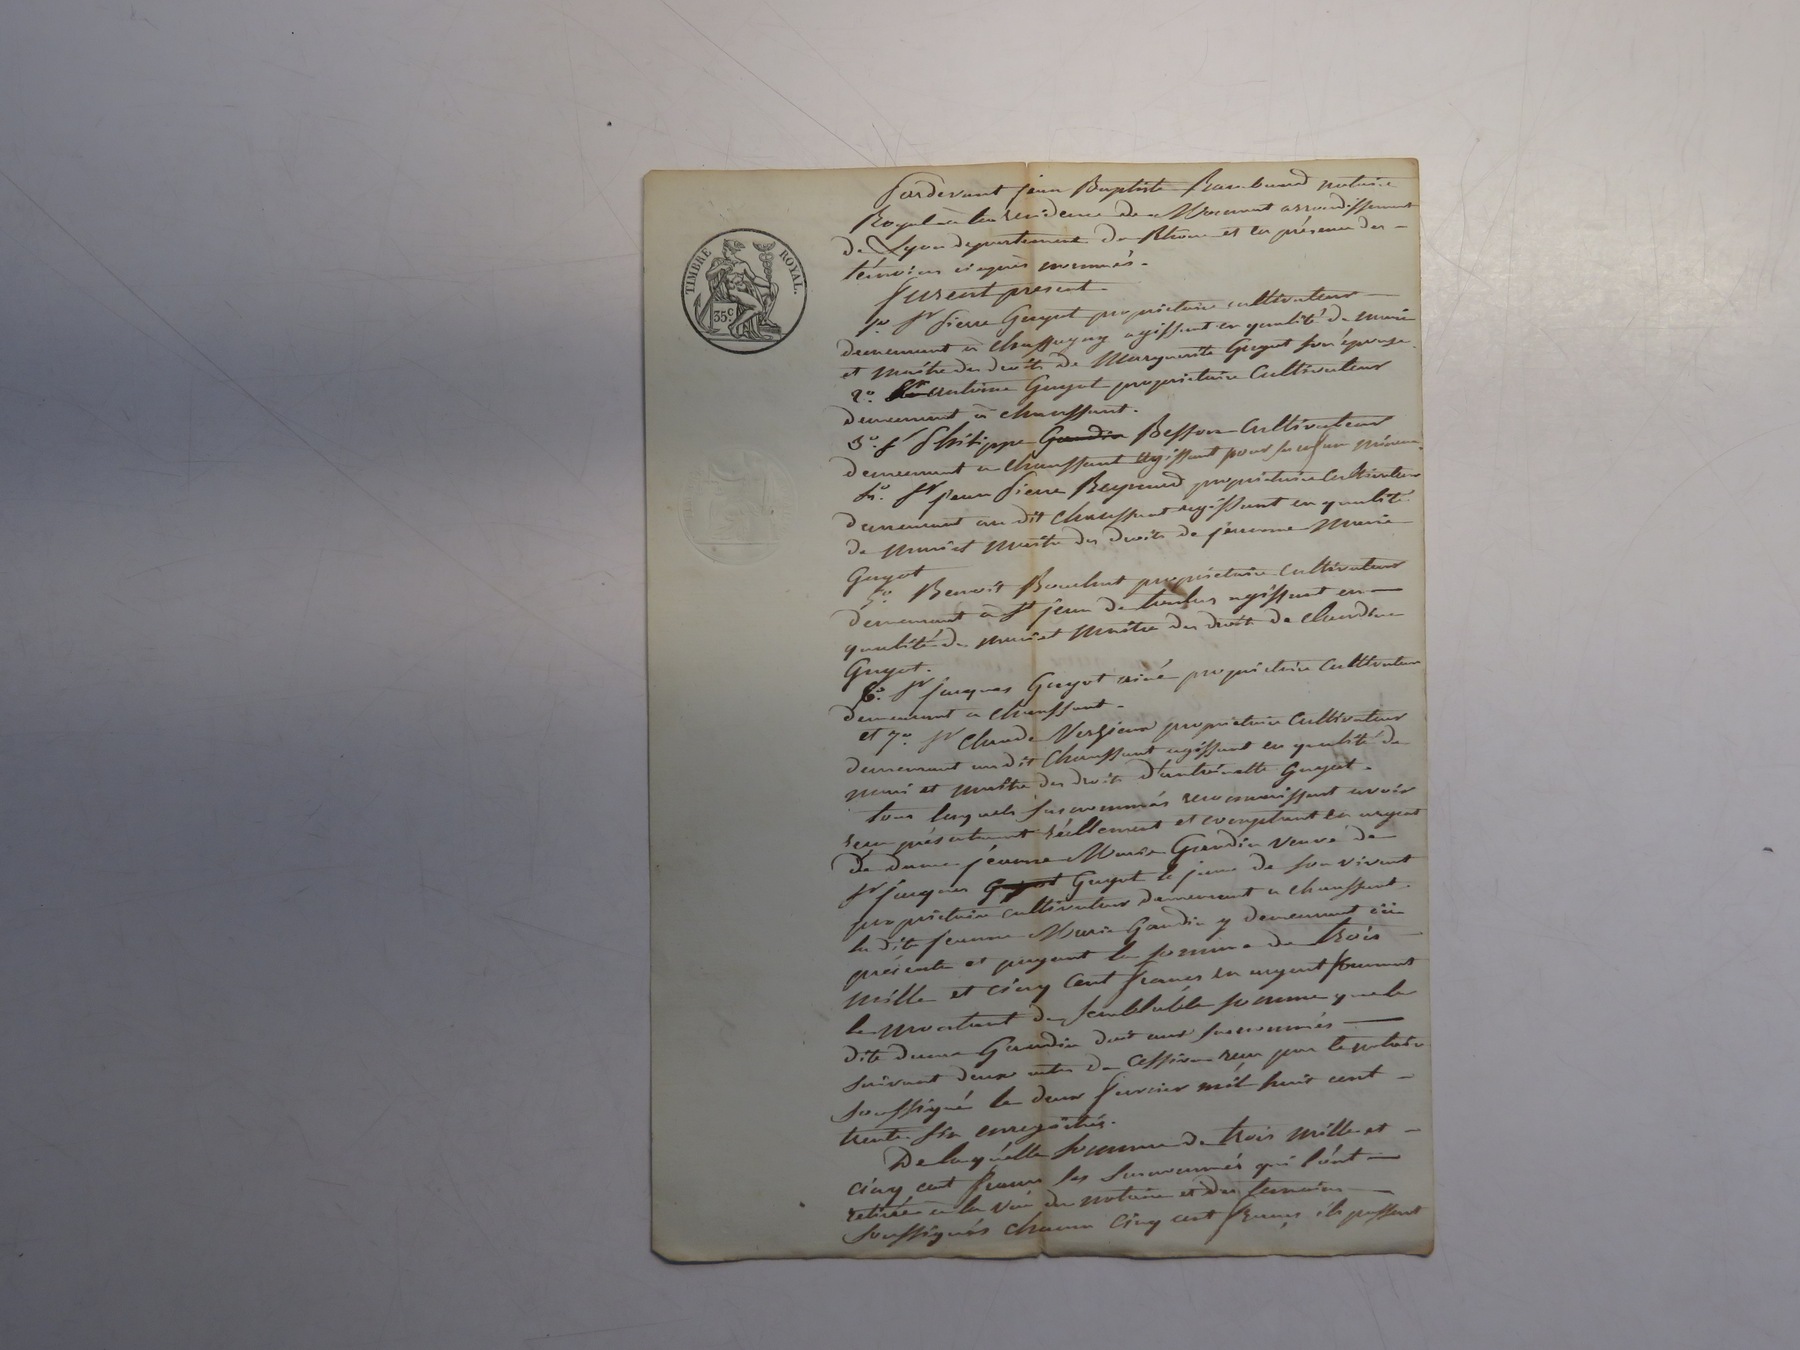 TIMBRE ROYAL.
35 c.
Pardevant jean Baptiste Rambaud notaire
Royal à la résidence de Mornant arrondissement
de Lyon departement du Rhône et en présence des
témoins ci après nommés.
furent présent.
1o. Sr pierre Guyot propriétaire cultivateur
demeurant à Chassagny agissant en qualité de mari
et maître des droits de Marguerite Guyot son épouse.
2o. antoine Guyot propriétaire Cultivateur
demeurant à chaussant.
3o. Sr philippe Gaudin Besson Cultivateur
demeurant a chaussant agissant pour
4o. Sr jean pierre Reynaud propriétaire Cultivateur
demeurant au dit chaussant agissant en qualité
de mari et maître des droits de jeanne Marie
Guyot
5o. Benoit Bouchut propriétaire Cultivateur
demeurant à St jean de touslas agissant en
qualité de mari et maître des droits de Claudine
Guyot.
6o. Sr jacques Guyot ainé propriétaire Cultivateur
demeurant a chaussant.
et 7o. Sr Claude Verzieux propriétaire Cultivateur
demeurant au dit Chaussant agissant en qualité de
mari et maître des droits d'antoinette Guyot.
tous lesquels susnommés reconnaissent avoir
reçu présentement réellement et comptant en argent
De dame jeanne Marie Gaudin veuve de
Sr jacques Guyot Guyot le jeune de son vivant
propriétaire cultivateur demeurant a chaussant.
la dite jeanne Marie Gaudin y demeurant ici
présente et payant la somme de trois
mille et cinq cent francs en argent formant
le montant de semblable somme que la
dite dame Gaudin doit aux susnommés
suivant deux actes de Cession reçu par le notaire
soussigné le deux fevrier mil huit cent
trente six enregistrés.
De laquelle somme de trois mille et
cinq cent francs les susnommés qui l'ont
retirée à la vüe du notaire et des temoins
soussignés chacun cinq cent francs, ils passent